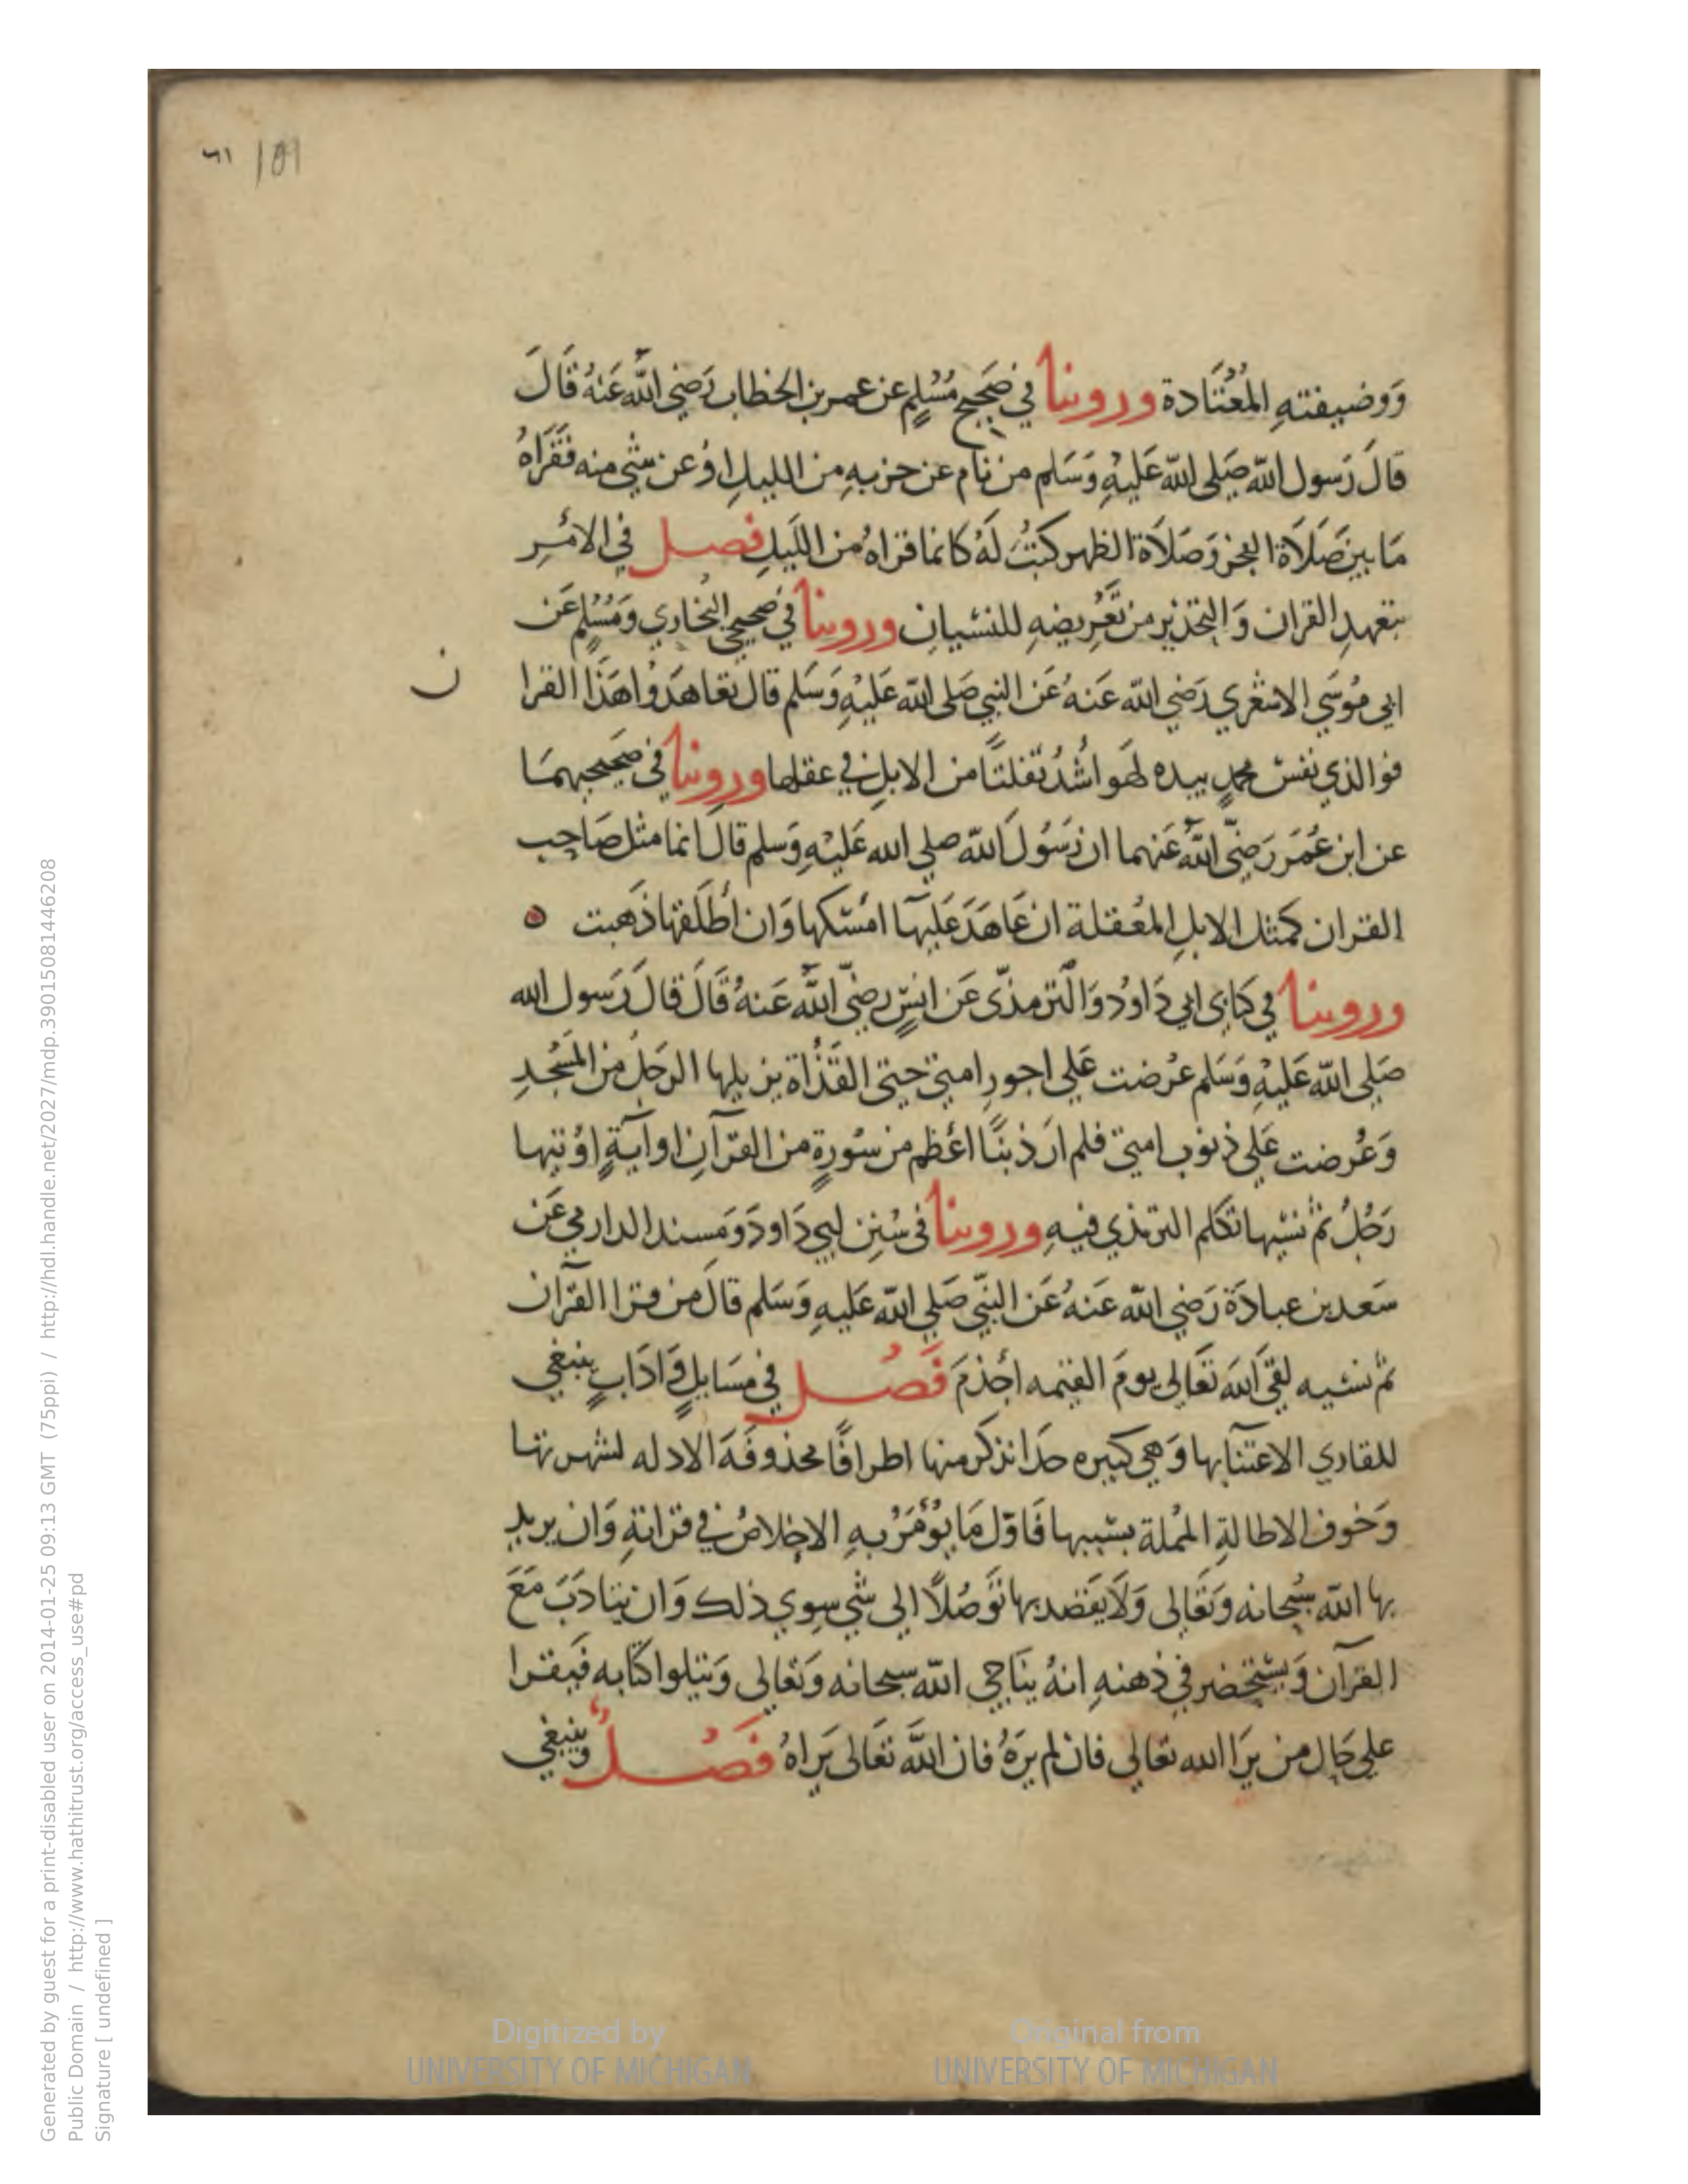 ٦١ 109
وَوضيفتهِ المُعْتَادة وروينا في صَحيح مُسْلمٍ عن عمر بن الخطاب رَضي اللّه عَنهُ قَالَ
قالَ رَسول اللّه صَلى اللّه عَليْهِ وَسَلم من نام عن حزبهِ من الليلِ اوْعن شي منه فقَرَاهُ
مَا بين صَلَاة الفجر وَصَلاَة الظهر كتبَ لَهُ كانما قراهُ من اللَيلِ فصل في الامْرِ
بتعهدِ القران وَالتحذير من تعْريضهِ للنسْيانِ وروينا في صحيحي البُخاري وَمُسْلمٍ عَن
ابي مُوسَي الاشعْري رَضي اللّه عَنهُ عَن النبي صَلى اللّه عَليْهِ وَسَلم قال تعَاهَدوُا هَذَا القرا
ن
فوالذي نفس محمدٍ بيده لهَو اشَدُ تفلتًا من الابلِ في عقلها وروينا في صَحيحيهمَا
عن ابن عُمَر رَضيَّ اللّه عَنهما ان رَسُولَ اللّه صلي الله عَليْهِ وَسلم قالَ انما مثل صَاحِب
القران كمثل الابلِ المعُقلة ان عَاهَدَ عَليهَا امْسَكها وَان اُطْلَقها ذهَبت
وروينا في كتابى ابي دَاوُد وَالترمذّى عَن انسٍ رضيّ اللّه عَنهُ قَالَ قالَ رَسول الله
صَلي اللّه عَليْهِ وَسَلم عُرْضت عَلي اجور امتي حتي القَذْاة يزيلها الرجَلُ من المَسْجدِ
وَعُرضت عَلي ذنوب امتي فلم ارَ ذنبًا اعْظم من سُورةٍ من القرآنِ او آيةٍ اوُتيها
رَجُلُ ثمْ نسيَها تكلم الترمذي فيهِ وروينا في سُننِ ابي دَاودَ وَمسند الدارمي عَن
سَعد بن عبادَة رَضي اللّه عَنهُ عَن النبّي صَلي اللّه عَليهِ وَسَلم قالَ من قرا القرآن
ثمْ نسيه لقيَ اللّهَ تعَالي يومَ القيمه اجْذمَ فَصْل في مَسَايلٍ وَادَابٍ ينبغي
للقاري الاعتنآ بها وَهي كبيره جدا نذكر منها اطرافًا محذوفَةَ الادله لشهرتها
وَخوف الاطالةِ المْملة بسَببها فَاوّل مَا يؤْمَرُ بهِ الاخلاصُ في قراتهِ وَان يريد
بها اللّه سُبحانه وَتعَالى وَلَا يقَصْد بها توَصُلًا الي شيْ سوي ذلك وَان يتادَبَ مَعَ
القرآن وَيستحضر في ذهنهِ انهُ يناجي اللّه سبحانه وَتعالى وَيتلوا كتابه فَيقرا
علي حَالِ من يرَا الله تعَالي فان لم يرَهُ فان اللّه تعَالى يَراهُ فَصْل وَينبغي
Digitized by
UNIVERSITY OF MICHIGAN
Original from
UNIVERSITY OF MICHIGAN
Generated by guest for a print-disabled user on 2014-01-25 09:13 GMT (75ppi) / http://hdl.handle.net/2027/mdp.39015081446208
Public Domain / http://www.hathitrust.org/access_use#pd
Signature [ undefined ]